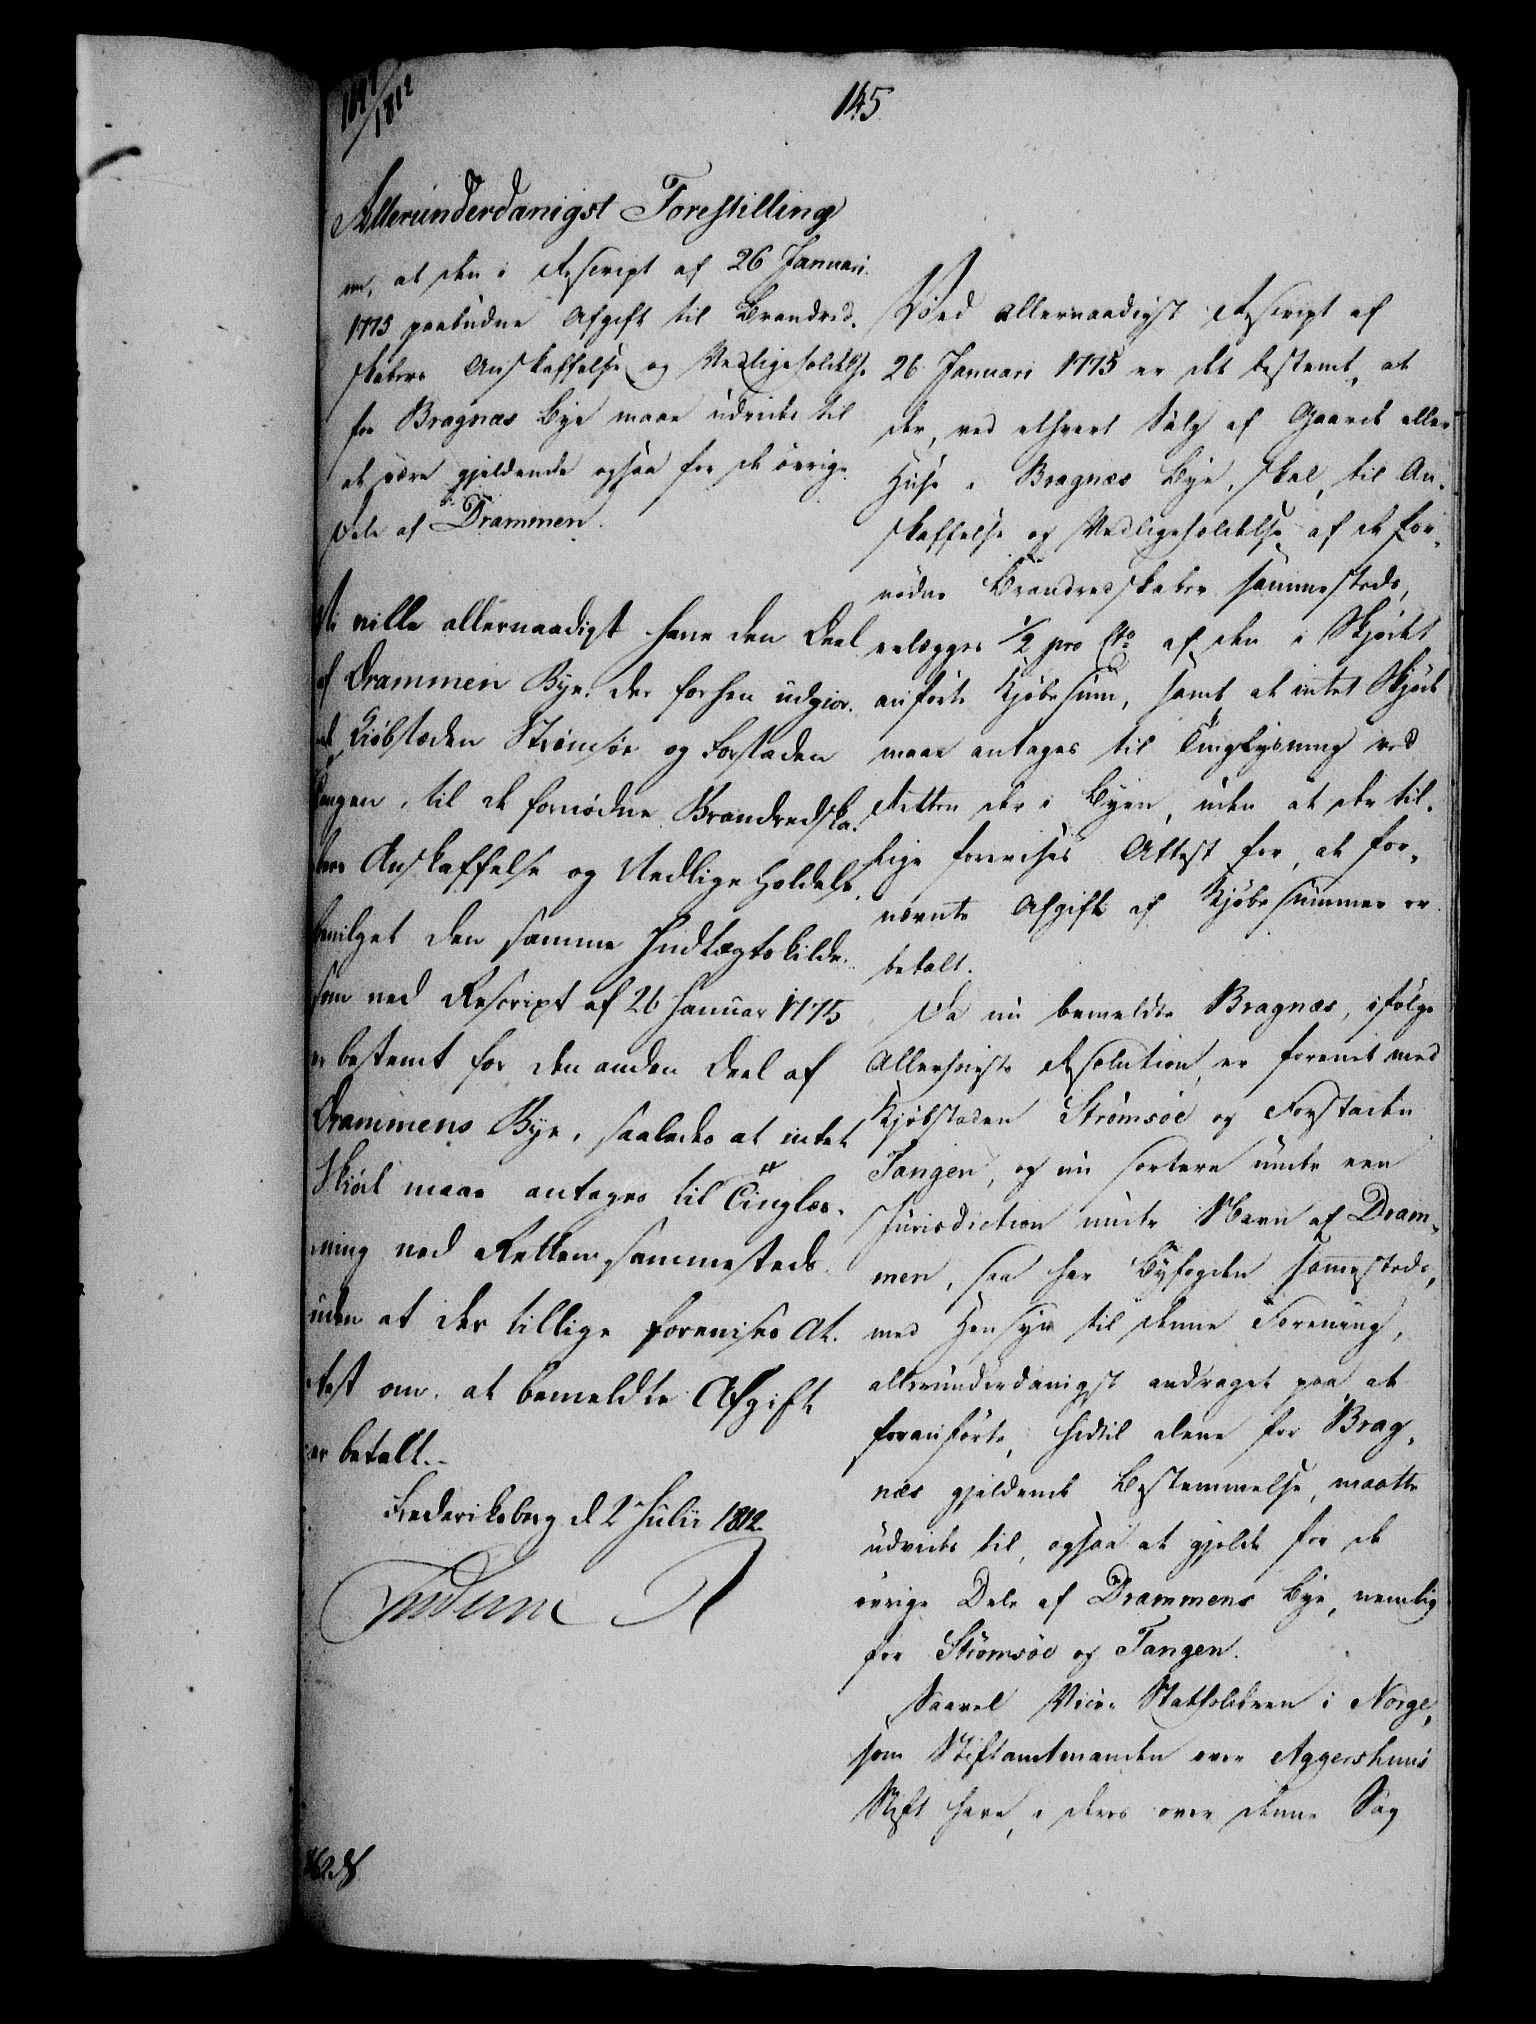 145
1812
Allerunderdanigst Forestilling
om, at den i Rescript af 26 Januari
1775 paabudne Afgift til Brandred-
skabers Anskaffelse og Vedligeholdelse
for Bragnæs Bye maae udvides til
at være gjeldende ogsaa for de övrige
Dele af Drammen.
Vi ville allernaadigst have den Deel
af Drammen Bye, der forhen udgior-
de Kiöbstæden Strömsöe og Forstaden
Tangen, til de fornödne Brandredska-
bers Anskaffelse og Vedlige Holdelse,
bevilget den samme Indtægtskilde
som ved Rescript af 26 Januar 1775
er bestemt for den anden Deel af
Drammens Bye, saaledes at intet
Skiöde maae antages til Tinglæs-
ning ved Retten sammesteds
uden at der tillige forevises At-
test om, at bemeldte Afgift
er betalt.-
Frederiksberg d 2 Julii 1812.
Frederik R
Ved allernaadigst Rescript af
26 Januari 1775 er det bestemt, at
der, ved ethvert Salg af Gaarde eller
Huse i Bragnæs Bye, skal, til An-
skaffelse og Vedligeholdelse af de for-
nödne Brandredskaber sammesteds,
erlægges 1/2 pro Cto af den i Skjödet
anförte Kjöbesum, samt at intet Skjöde
maae antages til Tinglysning ved
Retten der i Byen, uden at der til-
lige forevises Attest for, at for-
nævnte Afgift af Kjöbesummen er
betalt.
Da nu bemeldte Bragnæs, ifölge
Allerhöieste Resolution, er forenet med
Kjöbstaden Strömsöe og Forstaden
Tangen, og nu sortere under een
Jurisdiction under Navn af Dram-
men, saa har Byfogden sammesteds,
med Hensyn til denne Forening,
allerunderdanigst andraget paa, at
foranförte, hidtil alene for Brag-
næs gjeldende Bestemmelse, maatte
udvides til, ogsaa at gjelde for de
övrige Dele af Drammens Bye, nemlig
for Strömsöe og Tangen.
Saavel Vice-Statholderen i Norge,
som Stiftamtmanden over Aggershuus
Stift have, i deres over denne Sag